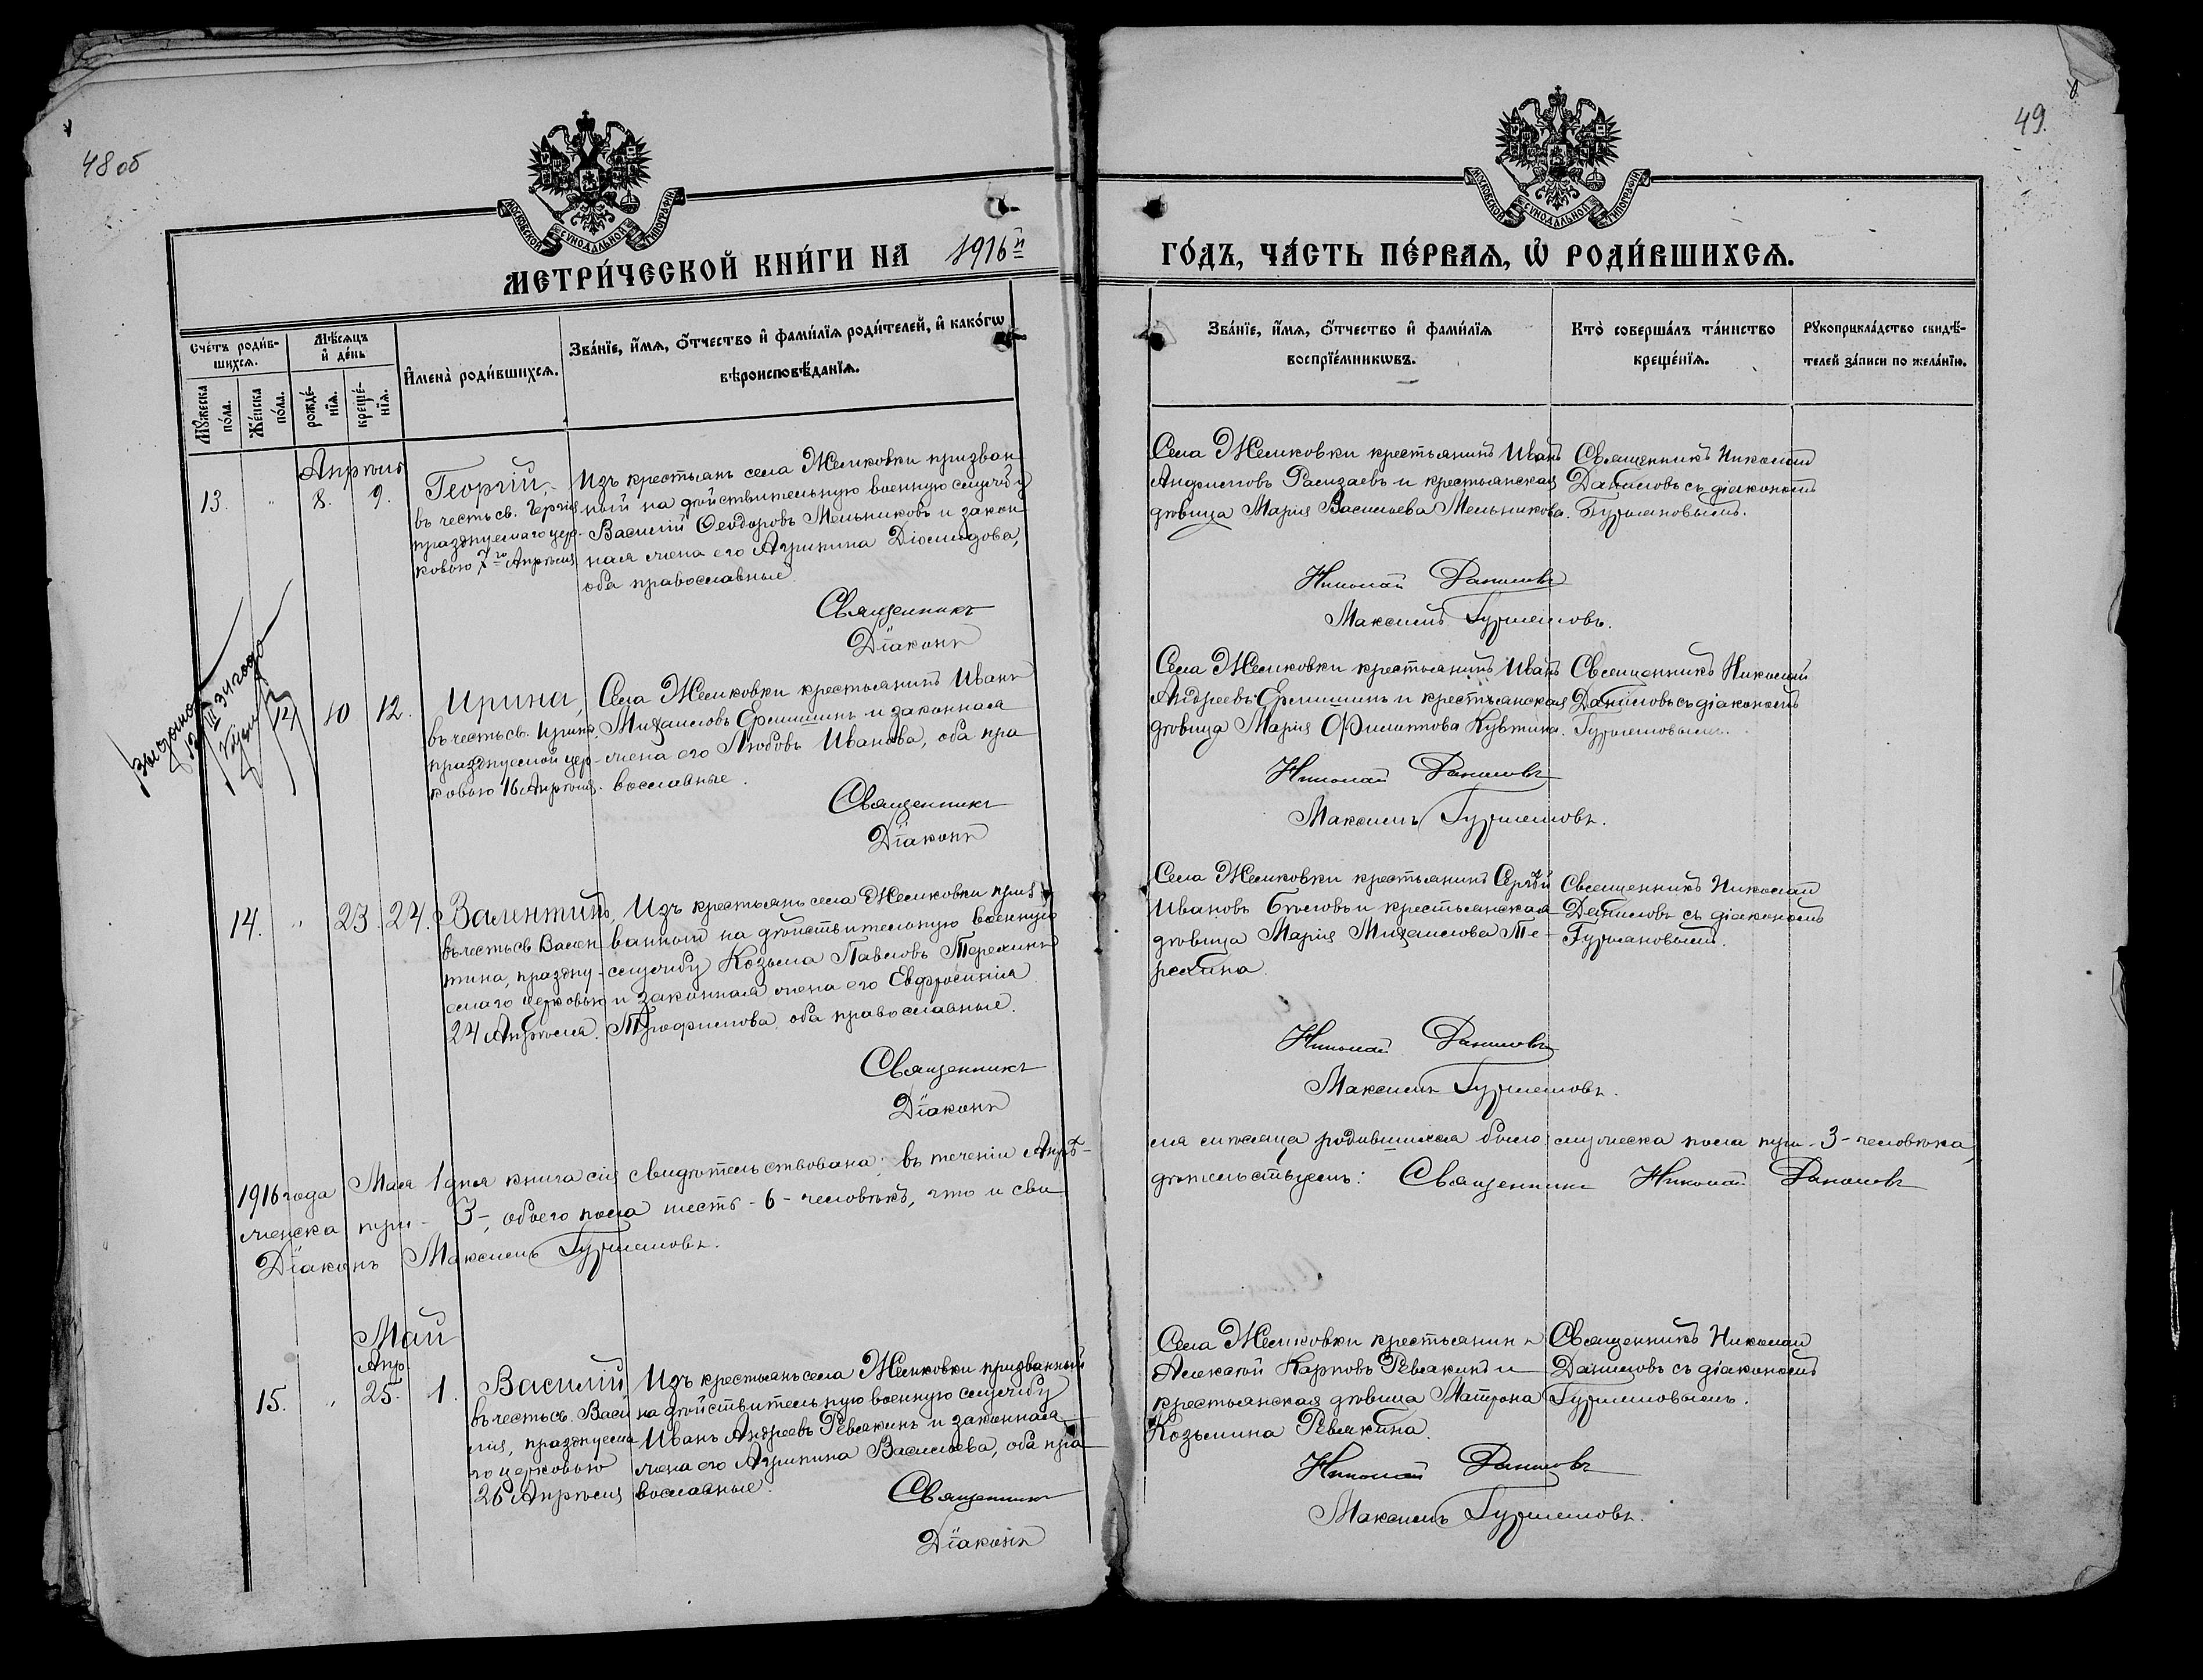 48 об
49.
МОСКОВСКОЙ СѴНОДАЛЬНОЙ ТИПОГРАФІИ
МОСКОВСКОЙ СѴНОДАЛЬНОЙ ТИПОГРАФІИ
МЕТРИ́ЧЕСКОЙ КНИ́ГИ НА 1916й
ГО́ДЪ, ЧА́СТЬ ПЕ́РВАѦ, Ѡ РОДИ́ВШИХСѦ.
Сче́тъ роди́в-
шихсѧ.
Мꙋ́жеска
по́ла.
Же́нска
по́ла.
Мѣ́сѧцъ
и҆ де́нь
рожде́-
нїѧ.
креще́-
нїѧ.
И҆мена̀ роди́вшихсѧ.
Зва́нїе, и҆́мѧ, ѻ҆́тчество и҆ фами́лїѧ роди́телей, и҆ како́гѡ
вѣроисповѣ́данїѧ.
Зва́нїе, и҆́мѧ, ѻ҆́тчество и҆ фами́лїѧ
воспрїе́мникѡвъ.
Кто̀ соверша́лъ та́инство
креще́нїѧ.
Рꙋкоприкла́дство свидѣ́-
телей за́писи по жела́нїю.
Апрѣль
13. „ 8. 9.
Георгій,
въ честь св. Гергія
празднуемаго цер-
ковью 7го Апрѣля
Изъ крестьянъ села Желиковки призван
ный на дѣйствительную военную службу
Василій Ѳеодоровъ Мельниковъ и закон
ная жена его Агрипина Діомидова,
оба православные.
Священникъ
Діаконъ
Села Желиковки крестьянинъ Иванъ
Анфиловъ Рамзаевъ и крестьянская
дѣвица Марія Васильева Мельникова.
Священникъ Николай
Даниловъ съ діакономъ
Николай Даниловъ
Максимъ
Выдано
12/III 34 года
12 10 12.
Ирина,
въ честь св. Ирины,
празднуемой цер-
ковью 16 Апрѣля.
Села Желиковки крестьянинъ Иванъ
Михаиловъ Еремшинъ и законная
жена его Любовь Иванова, оба пра
вославные.
Священникъ
Діаконъ
Села Желиковки крестьянинъ Иванъ
Андреевъ Еремшинъ и крестьянская
дѣвица Марія Филиппова
Священникъ Николай
Даниловъ съ діакономъ
Николай Даниловъ
Максимъ
14. „ 23. 24.
Валентинъ,
въ честь св. Вален
тина, праздну-
емаго церковью
24 Апрѣля.
Изъ крестьянъ села Желиковки приз
ванный на дѣйствительную военную
службу Козьма Павловъ Терехинъ
и законная жена его Евфросинія
Трофимова, оба православные.
Священникъ
Діаконъ
Села Желиковки крестьянинъ Сергѣй
Ивановъ Бѣловъ и крестьянская
дѣвица Марія Михаилова Те-
рехина.
Священникъ Николай
Даниловъ съ діакономъ
Николай Даниловъ
Максимъ
1916 года Мая 1 дня книга сія свидѣтельствована; въ теченіи Апрѣ-
ля мѣсяца родившихся было: мужеска пола три - 3 - человѣка,
женска три - 3 -, обоего пола шесть - 6 - человѣкъ, что и сви
дѣтельствуемъ: Священникъ Николай Даниловъ
Діаконъ Максимъ
Май
Апр.
15. „ 25. 1.
Василій
въ честь св. Васи
лія, празднуема
го церковью
26 Апрѣля
Изъ крестьянъ села Желиковки призванный
на дѣйствительную военную службу
Иванъ Андреевъ Ревякинъ и законная
жена его Агрипина Васильева, оба пра
вославные.
Священникъ
Діаконъ
Села Желиковки крестьянинъ
Алексѣй Карповъ Ревякинъ и
крестьянская дѣвица Матрона
Козьмина Ревякина.
Священникъ Николай
Даниловъ съ діакономъ
Николай Даниловъ
Максимъ